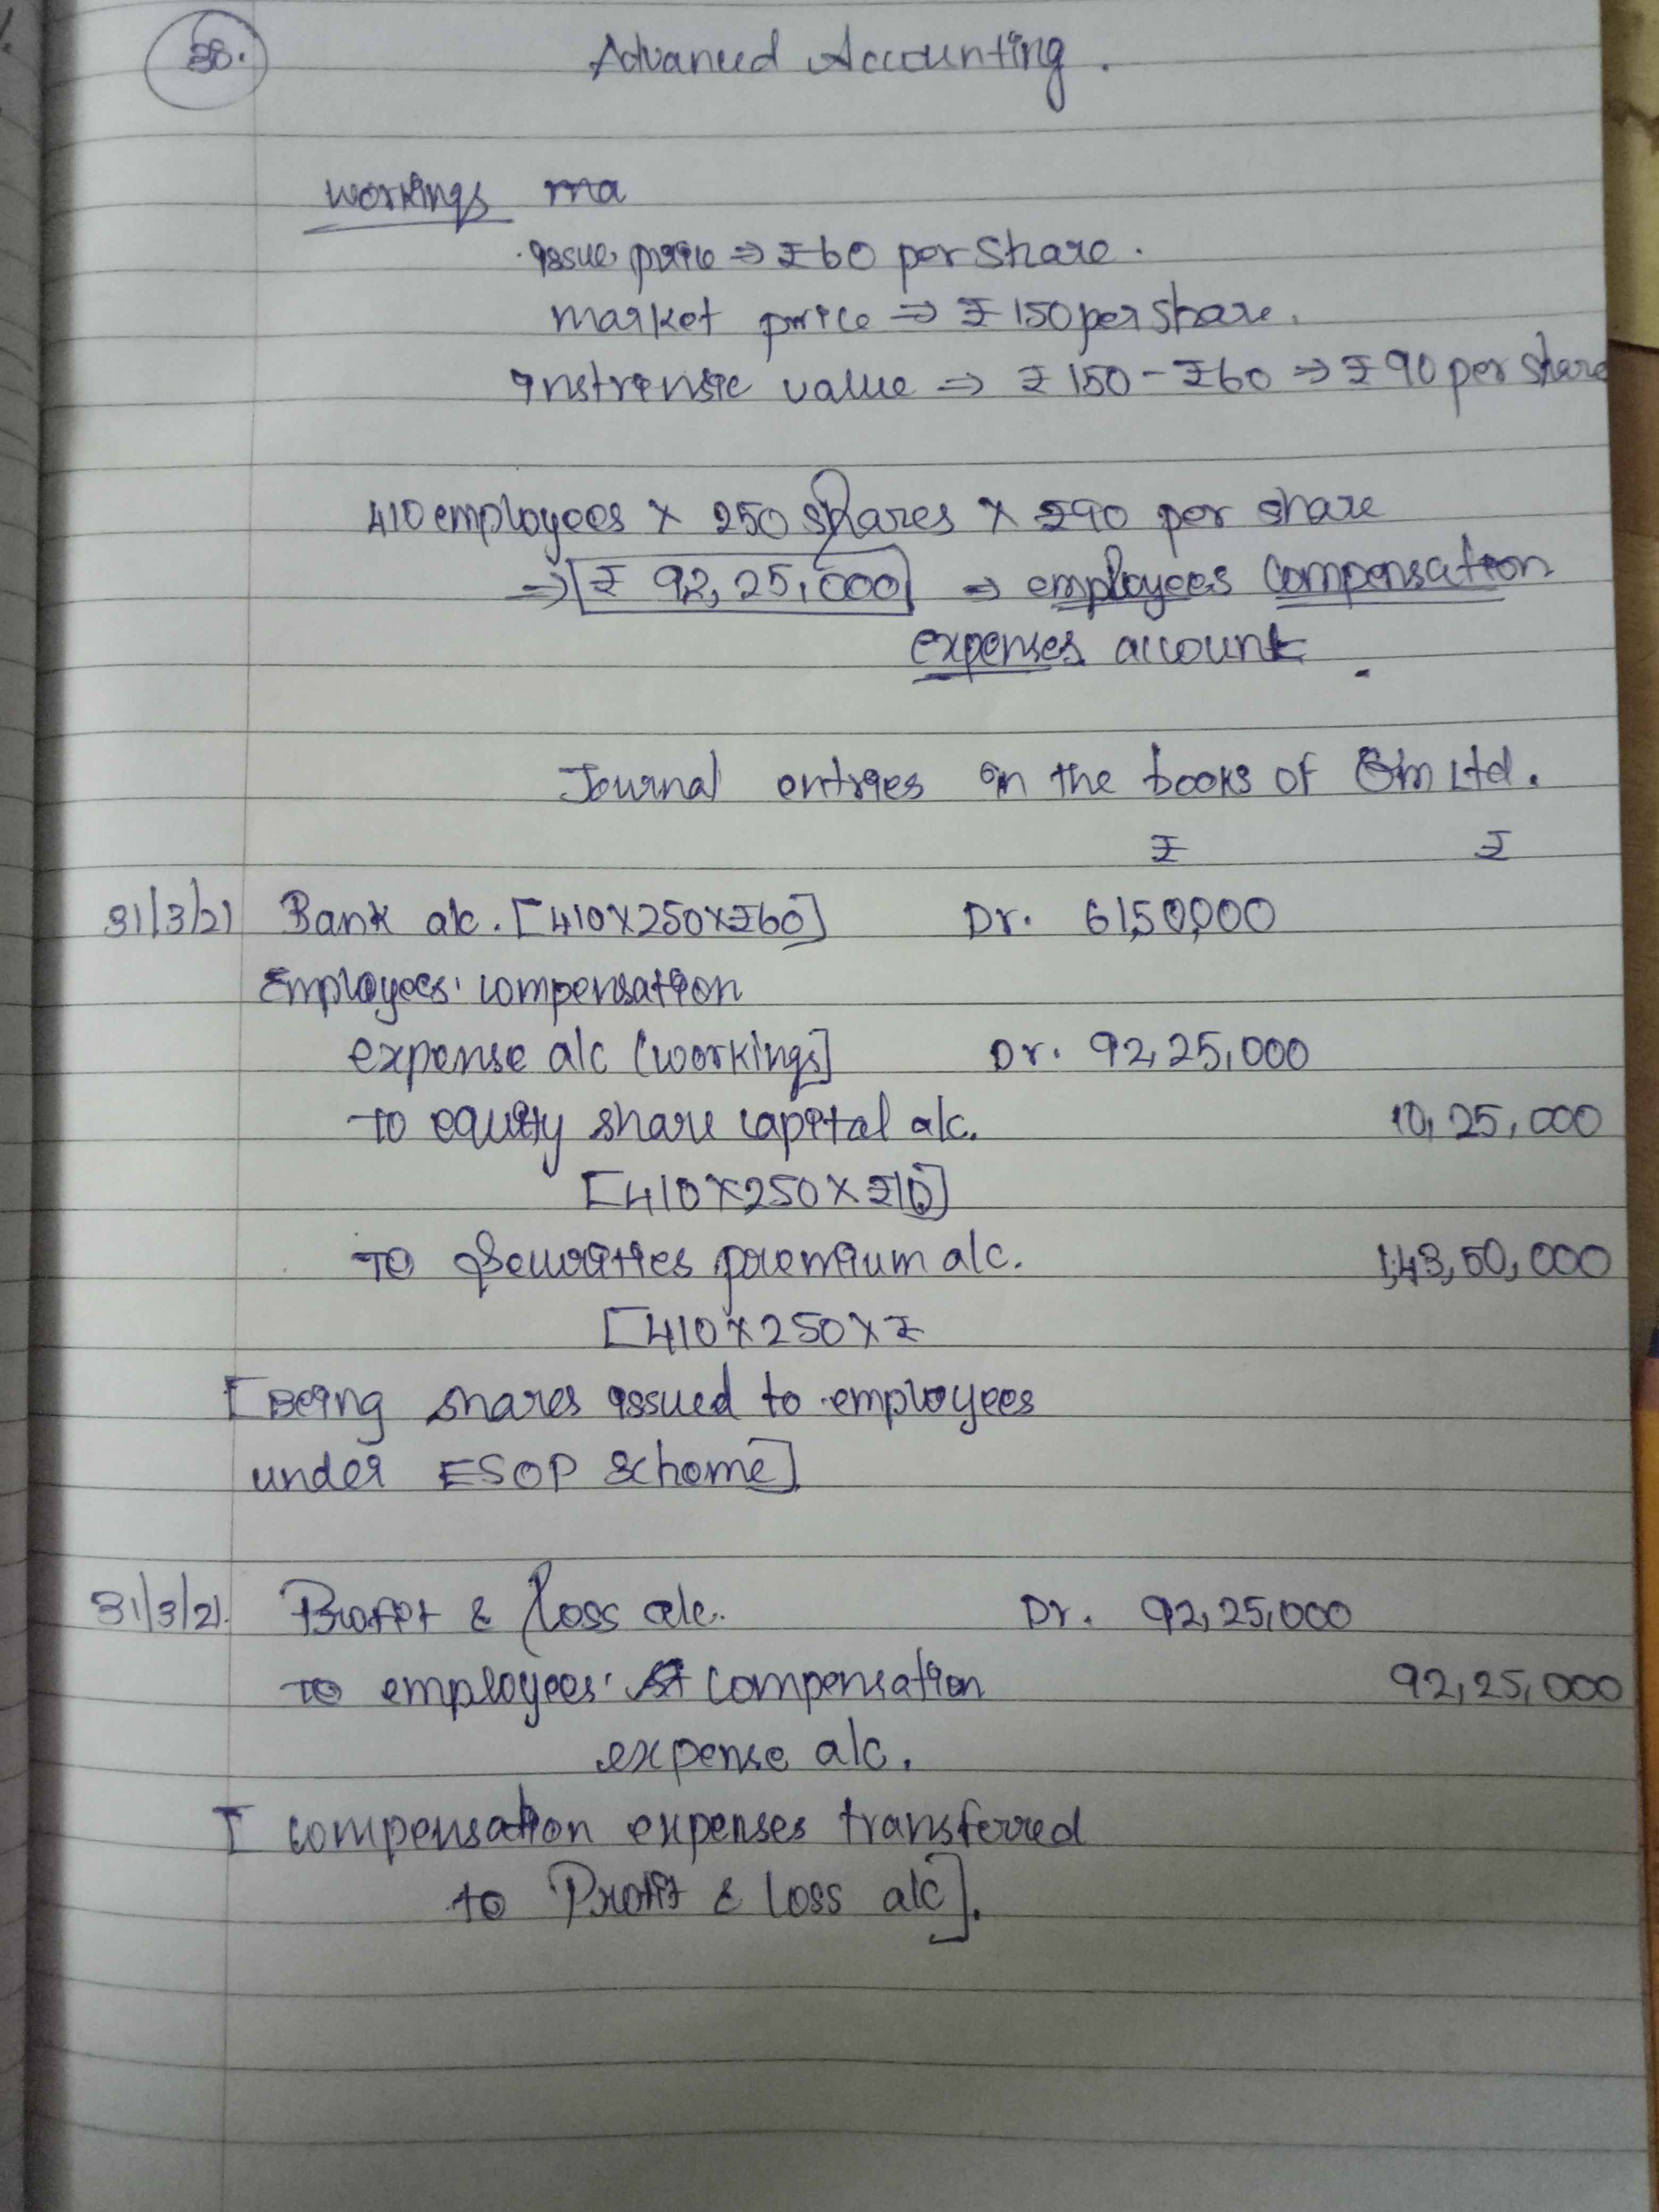 38.
Advanced Accounting.
Workings
Issue price ⇒ ₹60 per share.
market price ⇒ ₹150 per share.
Instrinsic value ⇒ ₹150 - ₹60 ⇒ ₹90 per share
410 employees × 250 shares × ₹90 per share
⇒ ₹ 92,25,000 ⇒ employees compensation
expenses account.
Journal entries in the books of Ltd.
₹ ₹
31/3/21 Bank a/c. [410×250×₹60] Dr. 61,50,000
Employees' compensation
expense a/c (workings] Dr. 92,25,000
To equity share capital a/c. 10,25,000
[410×250×₹10]
To Securities premium a/c. 1,43,50,000
[410×250×₹
[Being shares issued to employees
under ESOP scheme]
31/3/21. Profit & loss a/c. Dr. 92,25,000
To employees' compensation 92,25,000
expense a/c.
[compensation expenses transferred
to Profit & loss a/c].